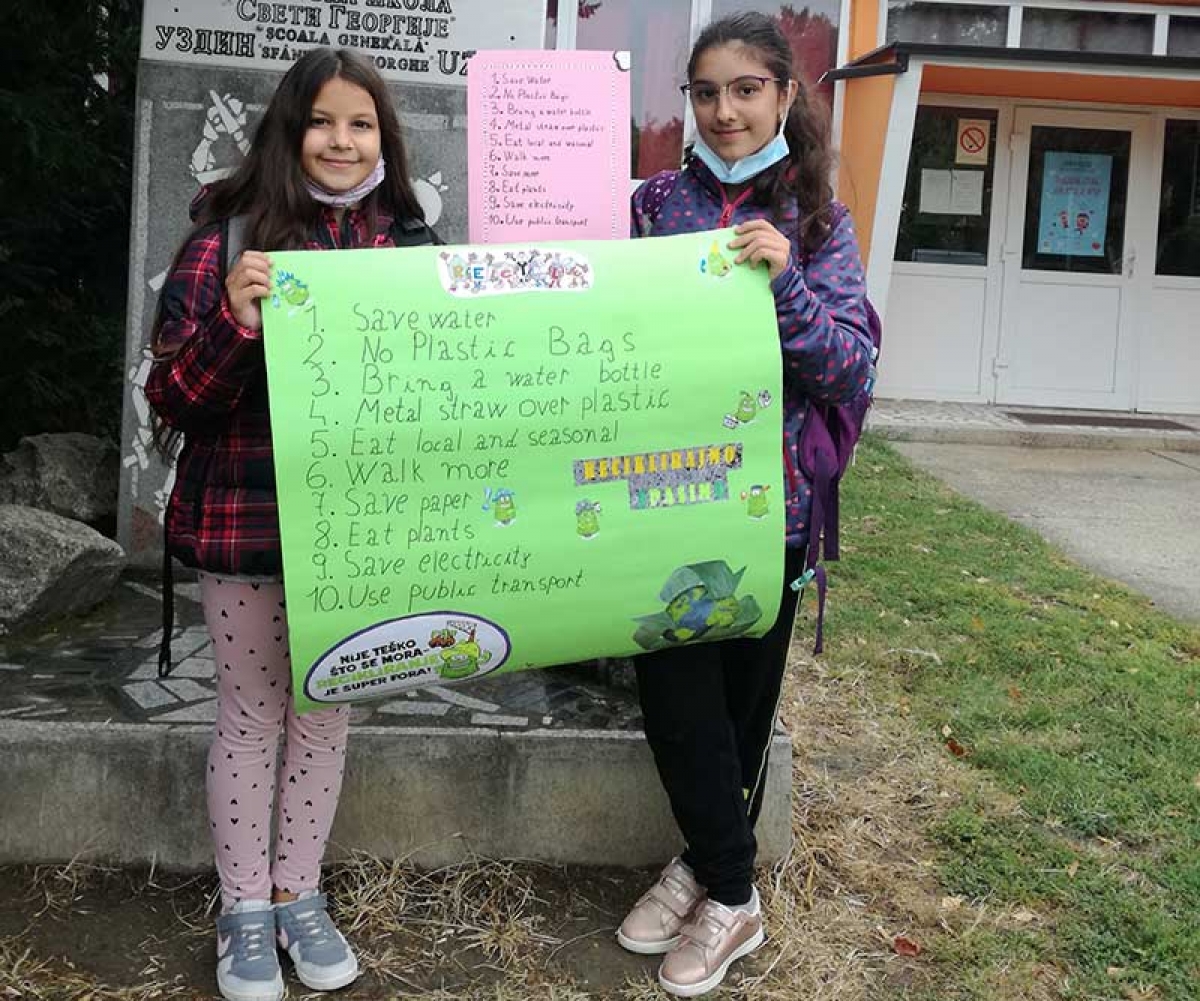 СВЕТИ ГЕОРГИЈЕ"
УЗДИН "ŞCOALA GENERALĂ"
1. Save Water
2. No Plastic Bags
3. Bring a water bottle
4. Metal straw over plastic
5. Eat local and seasonal
6. Walk more
7. Save
8. Eat plants
9. Save electricity
10. Use public transport
RECYCLE
1. Save water
2. No Plastic Bags
3. Bring a water bottle
4. Metal straw over plastic
5. Eat local and seasonal
6. Walk more
7. Save paper
8. Eat plants
9. Save electricity
10. Use public transport
RECIKLIRAJMO
NIJE TEŠKO
ŠTO SE MORA-
RECIKLIRANJE
JE SUPER FORA!